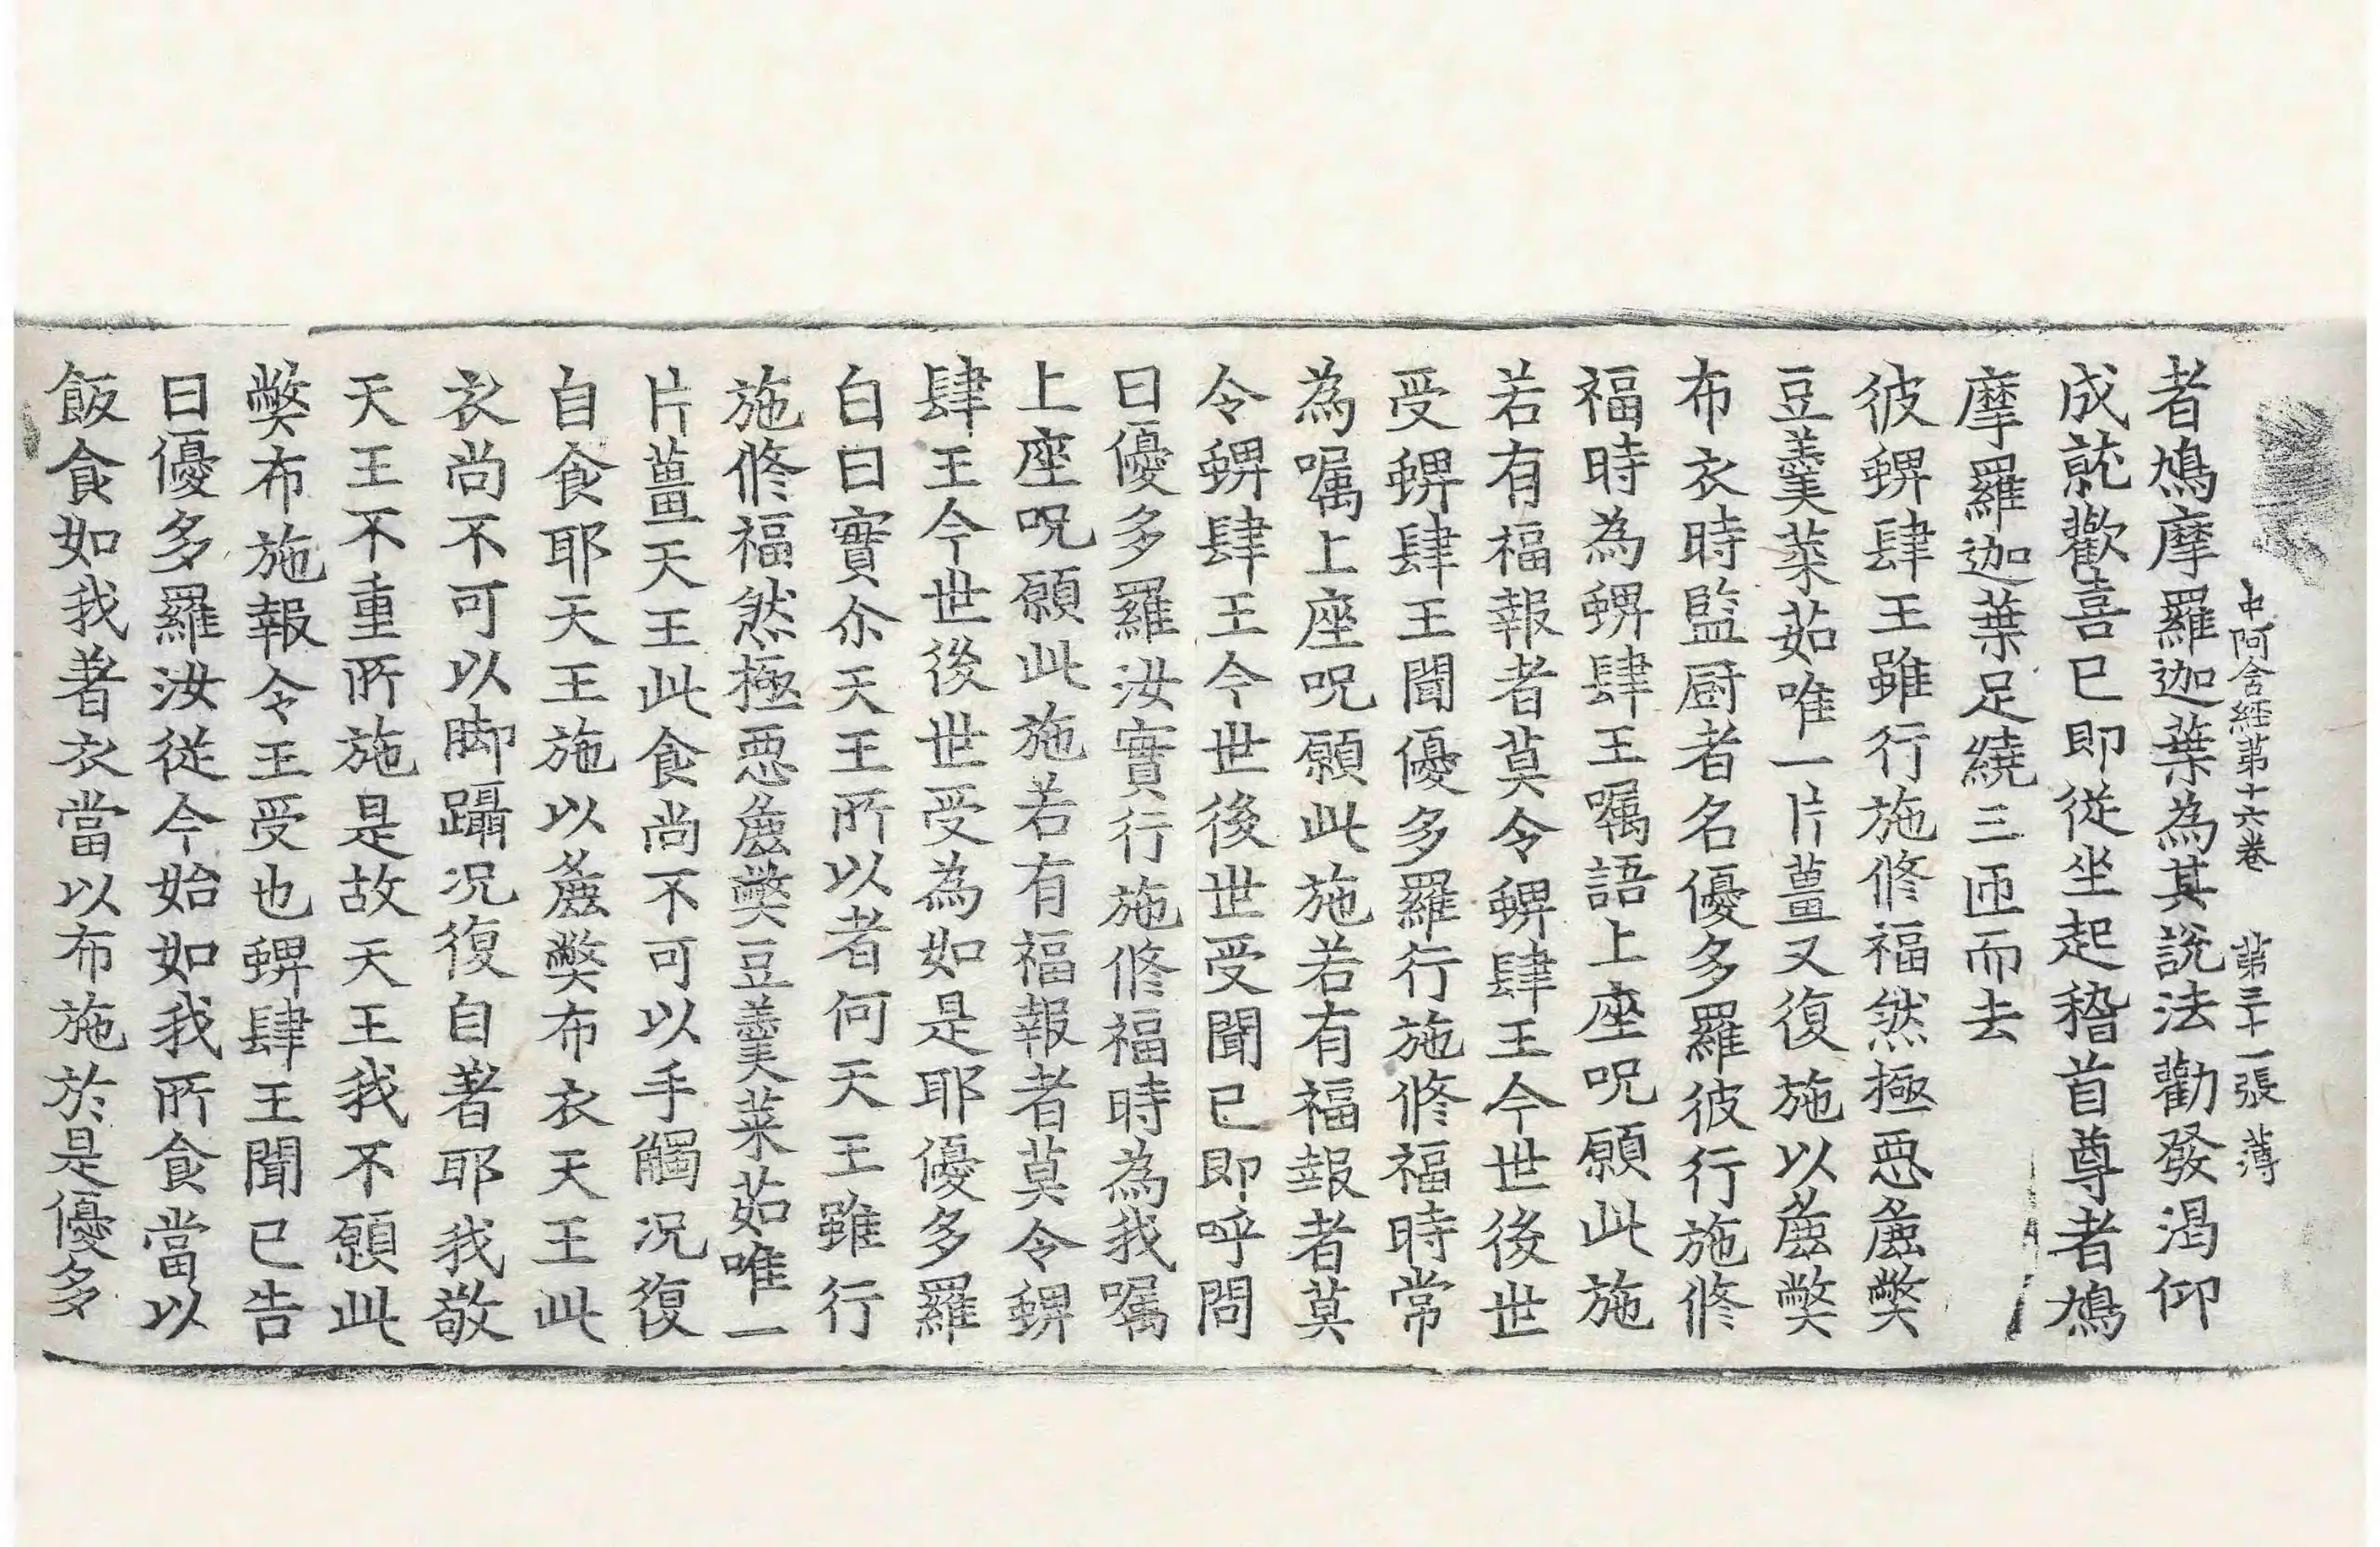 中阿含經第十六卷　第三十一張　薄
者鳩摩羅迦葉為其說法勸發渴仰
成就歡喜已即從坐起稽首尊者鳩
摩羅迦葉足繞三匝而去
彼蜱肆王雖行施修福然極惡麁弊
豆羹菜茹唯一片薑又復施以麁弊
布衣時監厨者名優多羅彼行施修
福時為蜱肆王囑語上座呪願此施
若有福報者莫令蜱肆王今世後世
受蜱肆王聞優多羅行施修福時常
為囑上座呪願此施若有福報者莫
令蜱肆王今世後世受聞已即呼問
曰優多羅汝實行施修福時為我囑
上座呪願此施若有福報者莫令蜱
肆王今世後世受為如是耶優多羅
白曰實尒天王所以者何天王雖行
施修福然極惡麁弊豆羹菜茹唯一
片薑天王此食尚不可以手觸況復
自食耶天王施以麁弊布衣天王此
衣尚不可以脚躡況復自著耶我敬
天王不重所施是故天王我不願此
弊布施報令王受也蜱肆王聞已告
曰優多羅汝從今始如我所食當以
飯食如我著衣當以布施於是優多